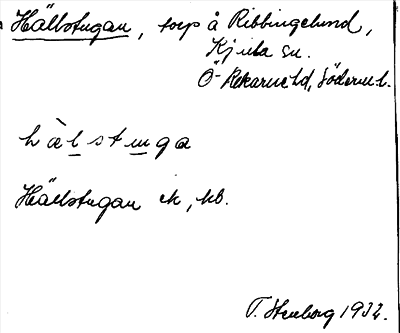 Hällstugan, torp å Ribbingelund,
Kjula sn.
Ö-Rekarne hd, Söderml.
hàlstuga
Hällstugan ek, kb.
T. Stenborg 1932.